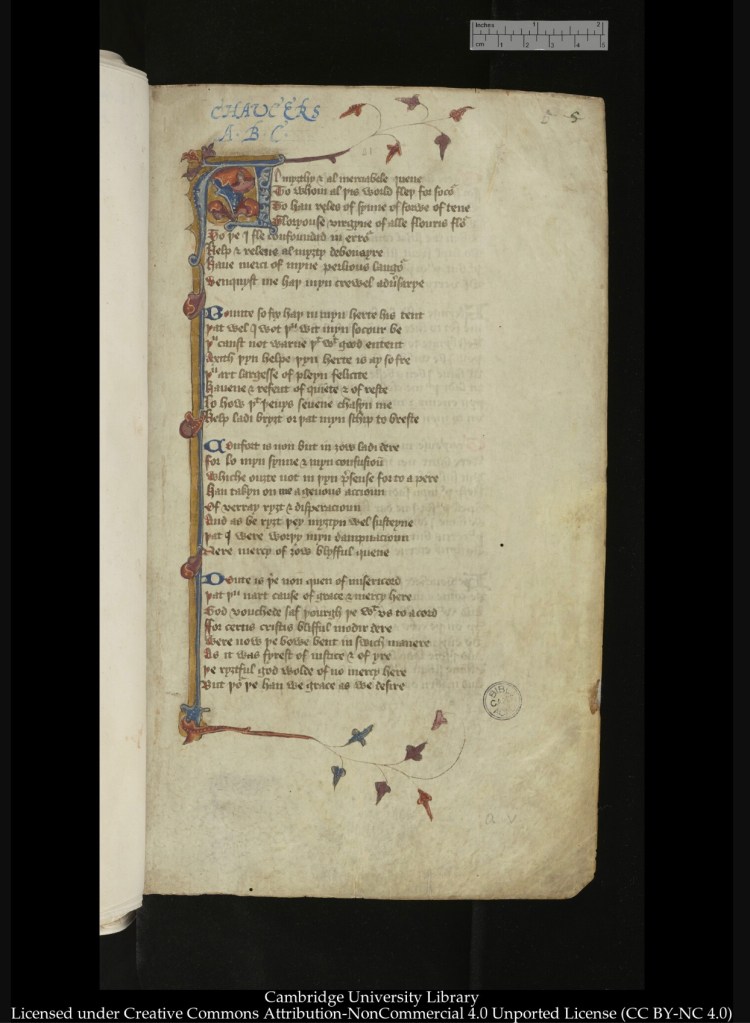 Inches 1 2
cm 1 2 3 4 5
CHAUCERS
A·B·C·
5
Almyȝthy & al merciabele quene
To whom al þis world fleþ for socoͬ
To han reles of synne of sorwe of tene
Gloryouse virgyne of alle flouris floͬ
To þe I fle confoundid in erroͬ
Help & releue al myȝty debonayre
Haue merci of myne perlious langoͬ
Venquyst me haþ myn crewel aduͥsarye
Bounte so fix haþ in myn herte his tent
þat wel I wot þͧ wit myn socour be
þͧ canst not warne þͭ wͭ good entent
Axith þyn helpe þyn herte is ay so fre
þͧ art largesse of pleyn felicite
Hauene & refeut of quiete & of reste
Lo how þͭ þeuys seuene chasyn me
Help ladi bryȝt or þat myn schip to breste
Cumfort is non but in ȝow ladi dere
For lo myn synne & myn confusioū
Whiche ouȝte not in þyn pͬsense for to a pere
Han takyn on me a greuous accioun
Of verray ryȝt & disperacioun
And as be ryȝt þey myȝtyn wel susteyne
þat I were worþy myn dampnacioun
Nere mercy of ȝow blysful quene
Doute is þͬe non quen of misericord
þat þͧ nart cause of grace & mercy here
God vouchede saf þourgh þe wͭ vs to acord
For certis cristis blisful modir dere
Were now þe bowe bent in swich manere
As it was fyrst of iustice & of yre
þe ryȝtful god wolde of no mercy here
But þoͬ þe han we grace as we desire
Cambridge University Library
Licensed under Creative Commons Attribution-NonCommercial 4.0 Unported License (CC BY-NC 4.0)